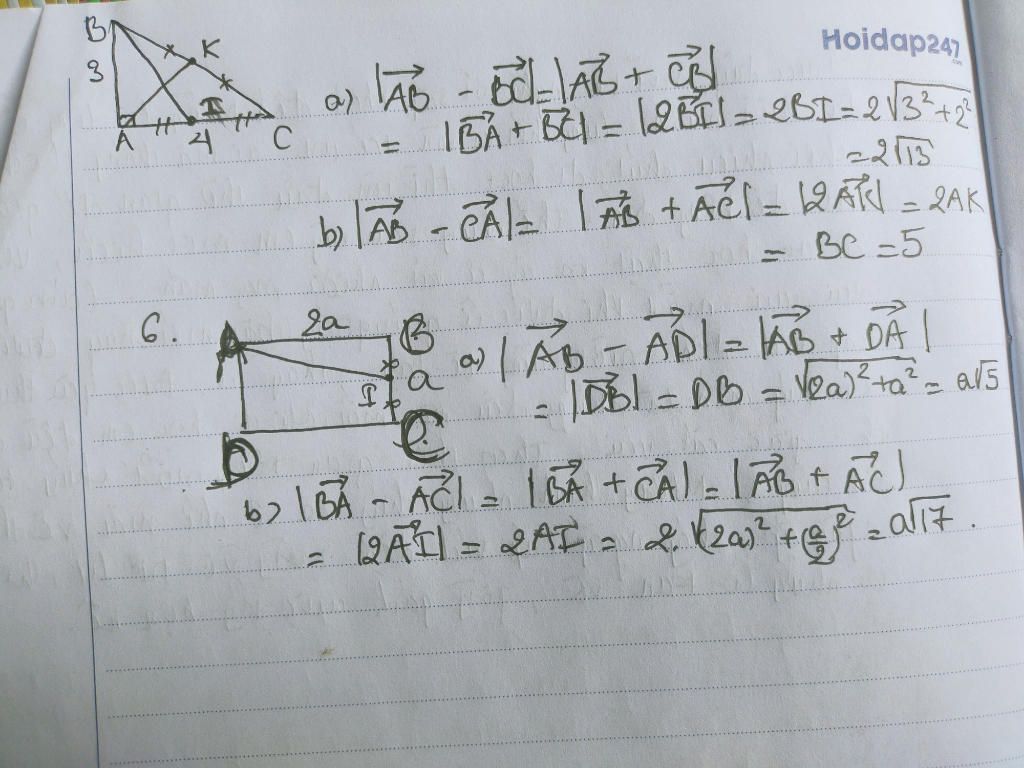 Hoidap247
.com
B
K
3
I
A
4
C
a) |AB⃗ - BC⃗| = |AB⃗ + CB⃗|
= |BA⃗ + BC⃗| = |2BI⃗| = 2BI = 2√(3² + 2²)
= 2√13
b) |AB⃗ - CA⃗| = |AB⃗ + AC⃗| = |2AK⃗| = 2AK
= BC = 5
6.
A
2a
B
a
I
D
C
a) |AB⃗ - AD⃗| = |AB⃗ + DA⃗|
= |DB⃗| = DB = √((2a)² + a²) = a√5
b) |BA⃗ - AC⃗| = |BA⃗ + CA⃗| = |AB⃗ + AC⃗|
= |2AI⃗| = 2AI = 2.√((2a)² + (a/2)²) = a√17.